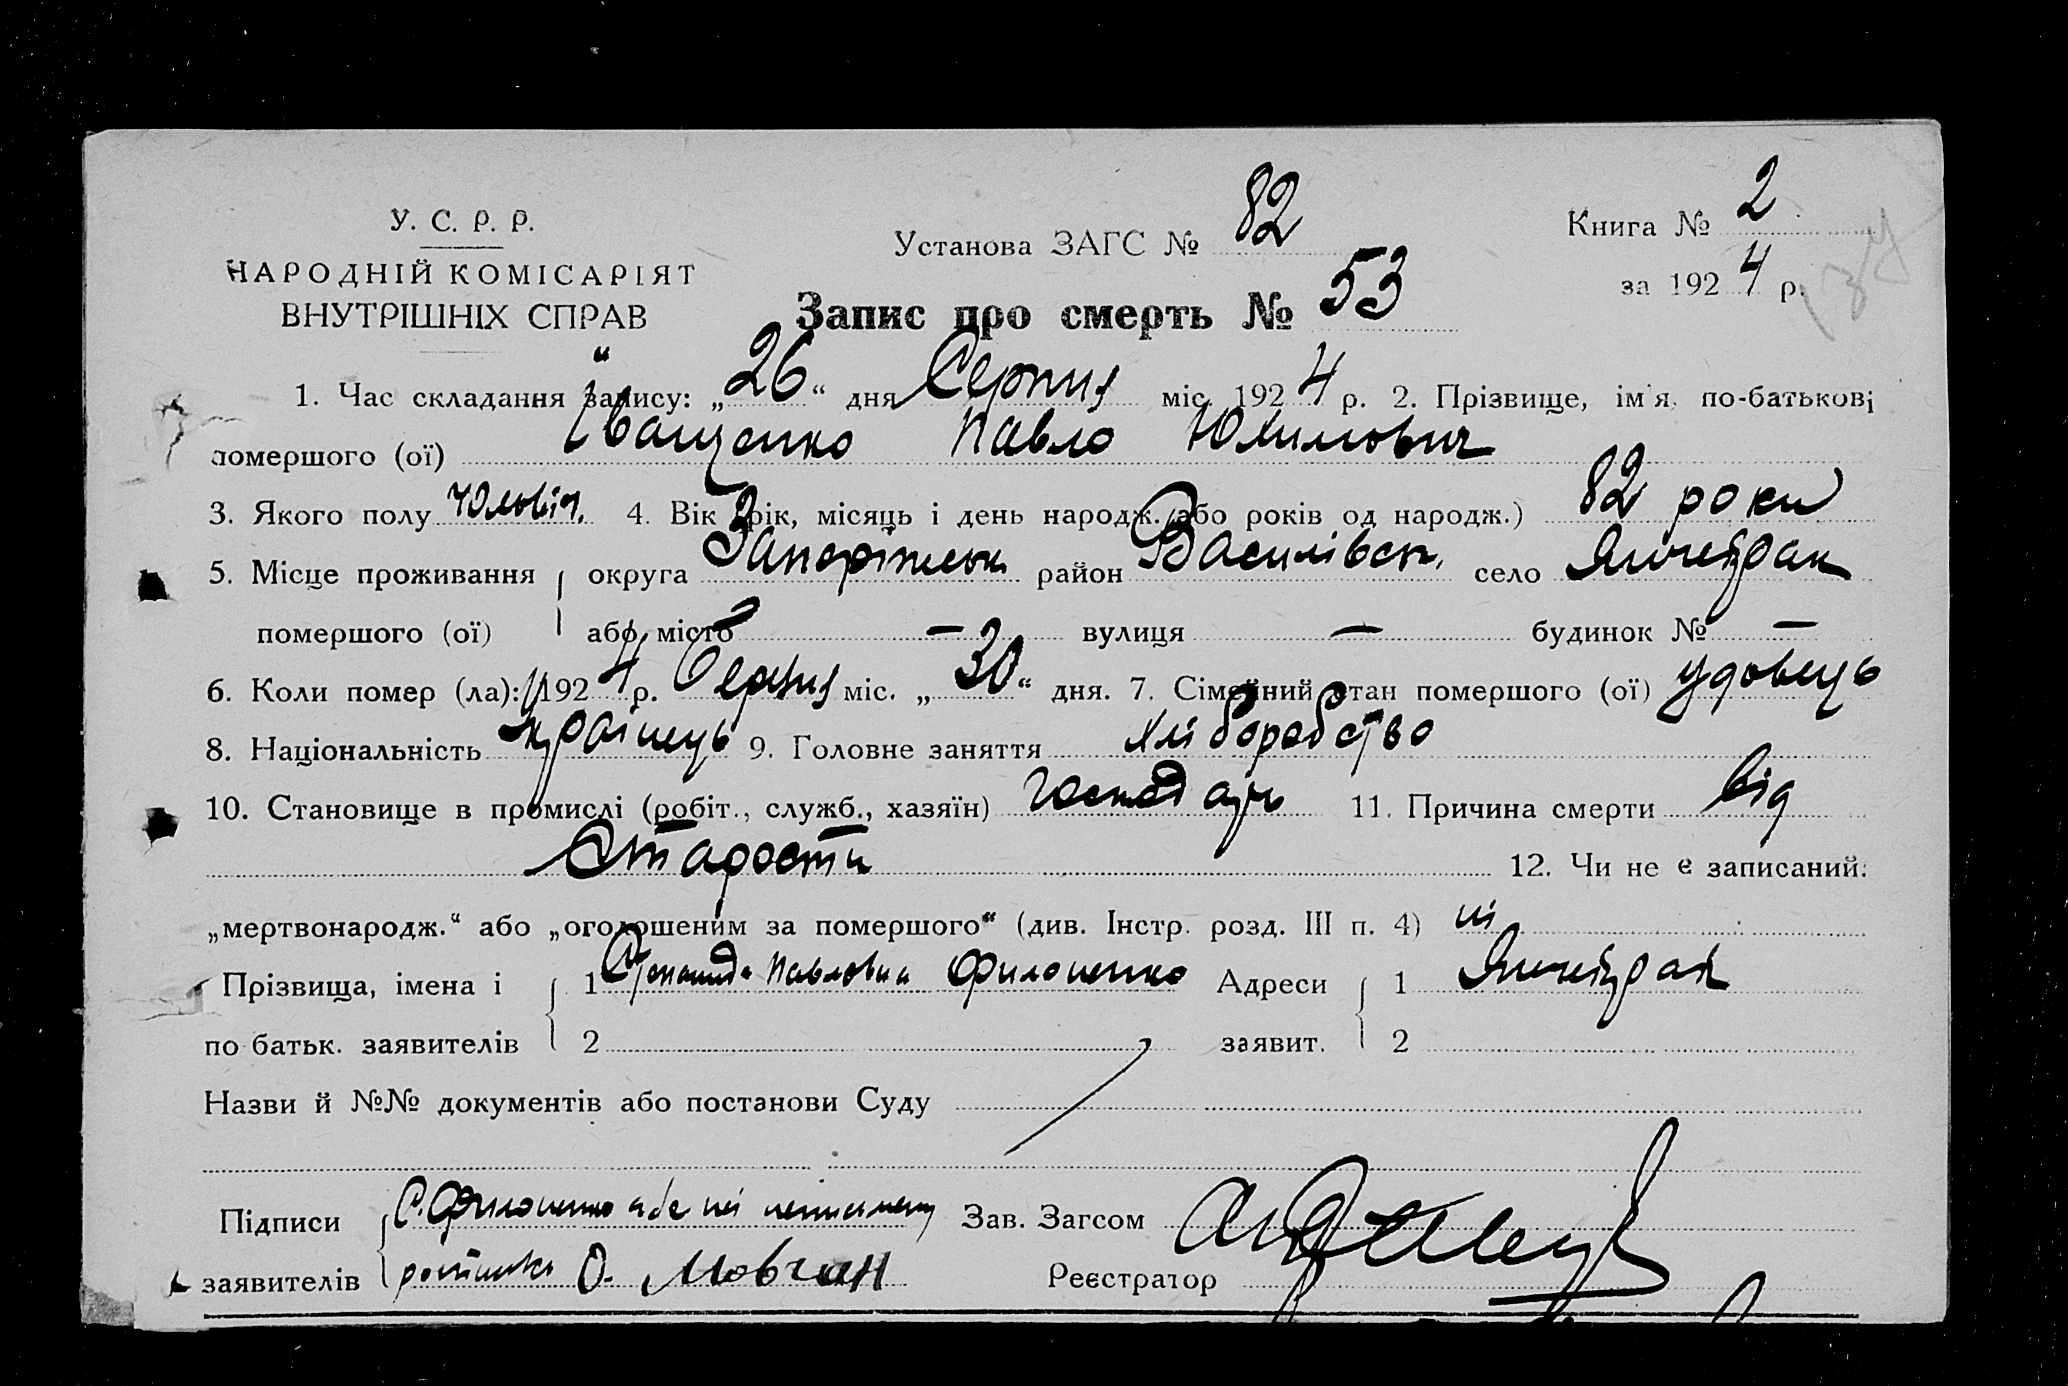 У. С. Р. Р.
НАРОДНІЙ КОМІСАРІЯТ
ВНУТРІШНІХ СПРАВ
Установа ЗАГС № 82
Книга № 2
за 1924 р.
Запис про смерть № 53
1. Час складання запису: „26“ дня Серпня міс. 1924 р. 2. Прізвище, ім'я, по-батькові
помершого (ої) Іващенко Павло Юхимович
3. Якого полу чоловіч. 4. Вік (рік, місяць і день народж. або років од народж.) 82 роки
5. Місце проживання округа Запоріжськ район Василівськ. село Янчекрак
помершого (ої) або місто — вулиця — будинок № —
6. Коли помер (ла): 1924 р. Серпня міс. „30“ дня. 7. Сімейний стан помершого (ої) удовець
8. Національність українець 9. Головне заняття хліборобство
10. Становище в промислі (робіт., служб., хазяїн) господарь 11. Причина смерти від
старости 12. Чи не є записаний:
„мертвонародж.“ або „оголошеним за помершого“ (див. Інстр. розд. III п. 4) ні
Прізвища, імена і 1 Павловна Филоненко Адреси 1 Янчекрак
по батьк. заявителів 2 заявит. 2
Назви й №№ документів або постанови Суду
Підписи С. Филоненко а за неї неписьмену Зав. Загсом
заявителів О. Мовчан Реєстратор